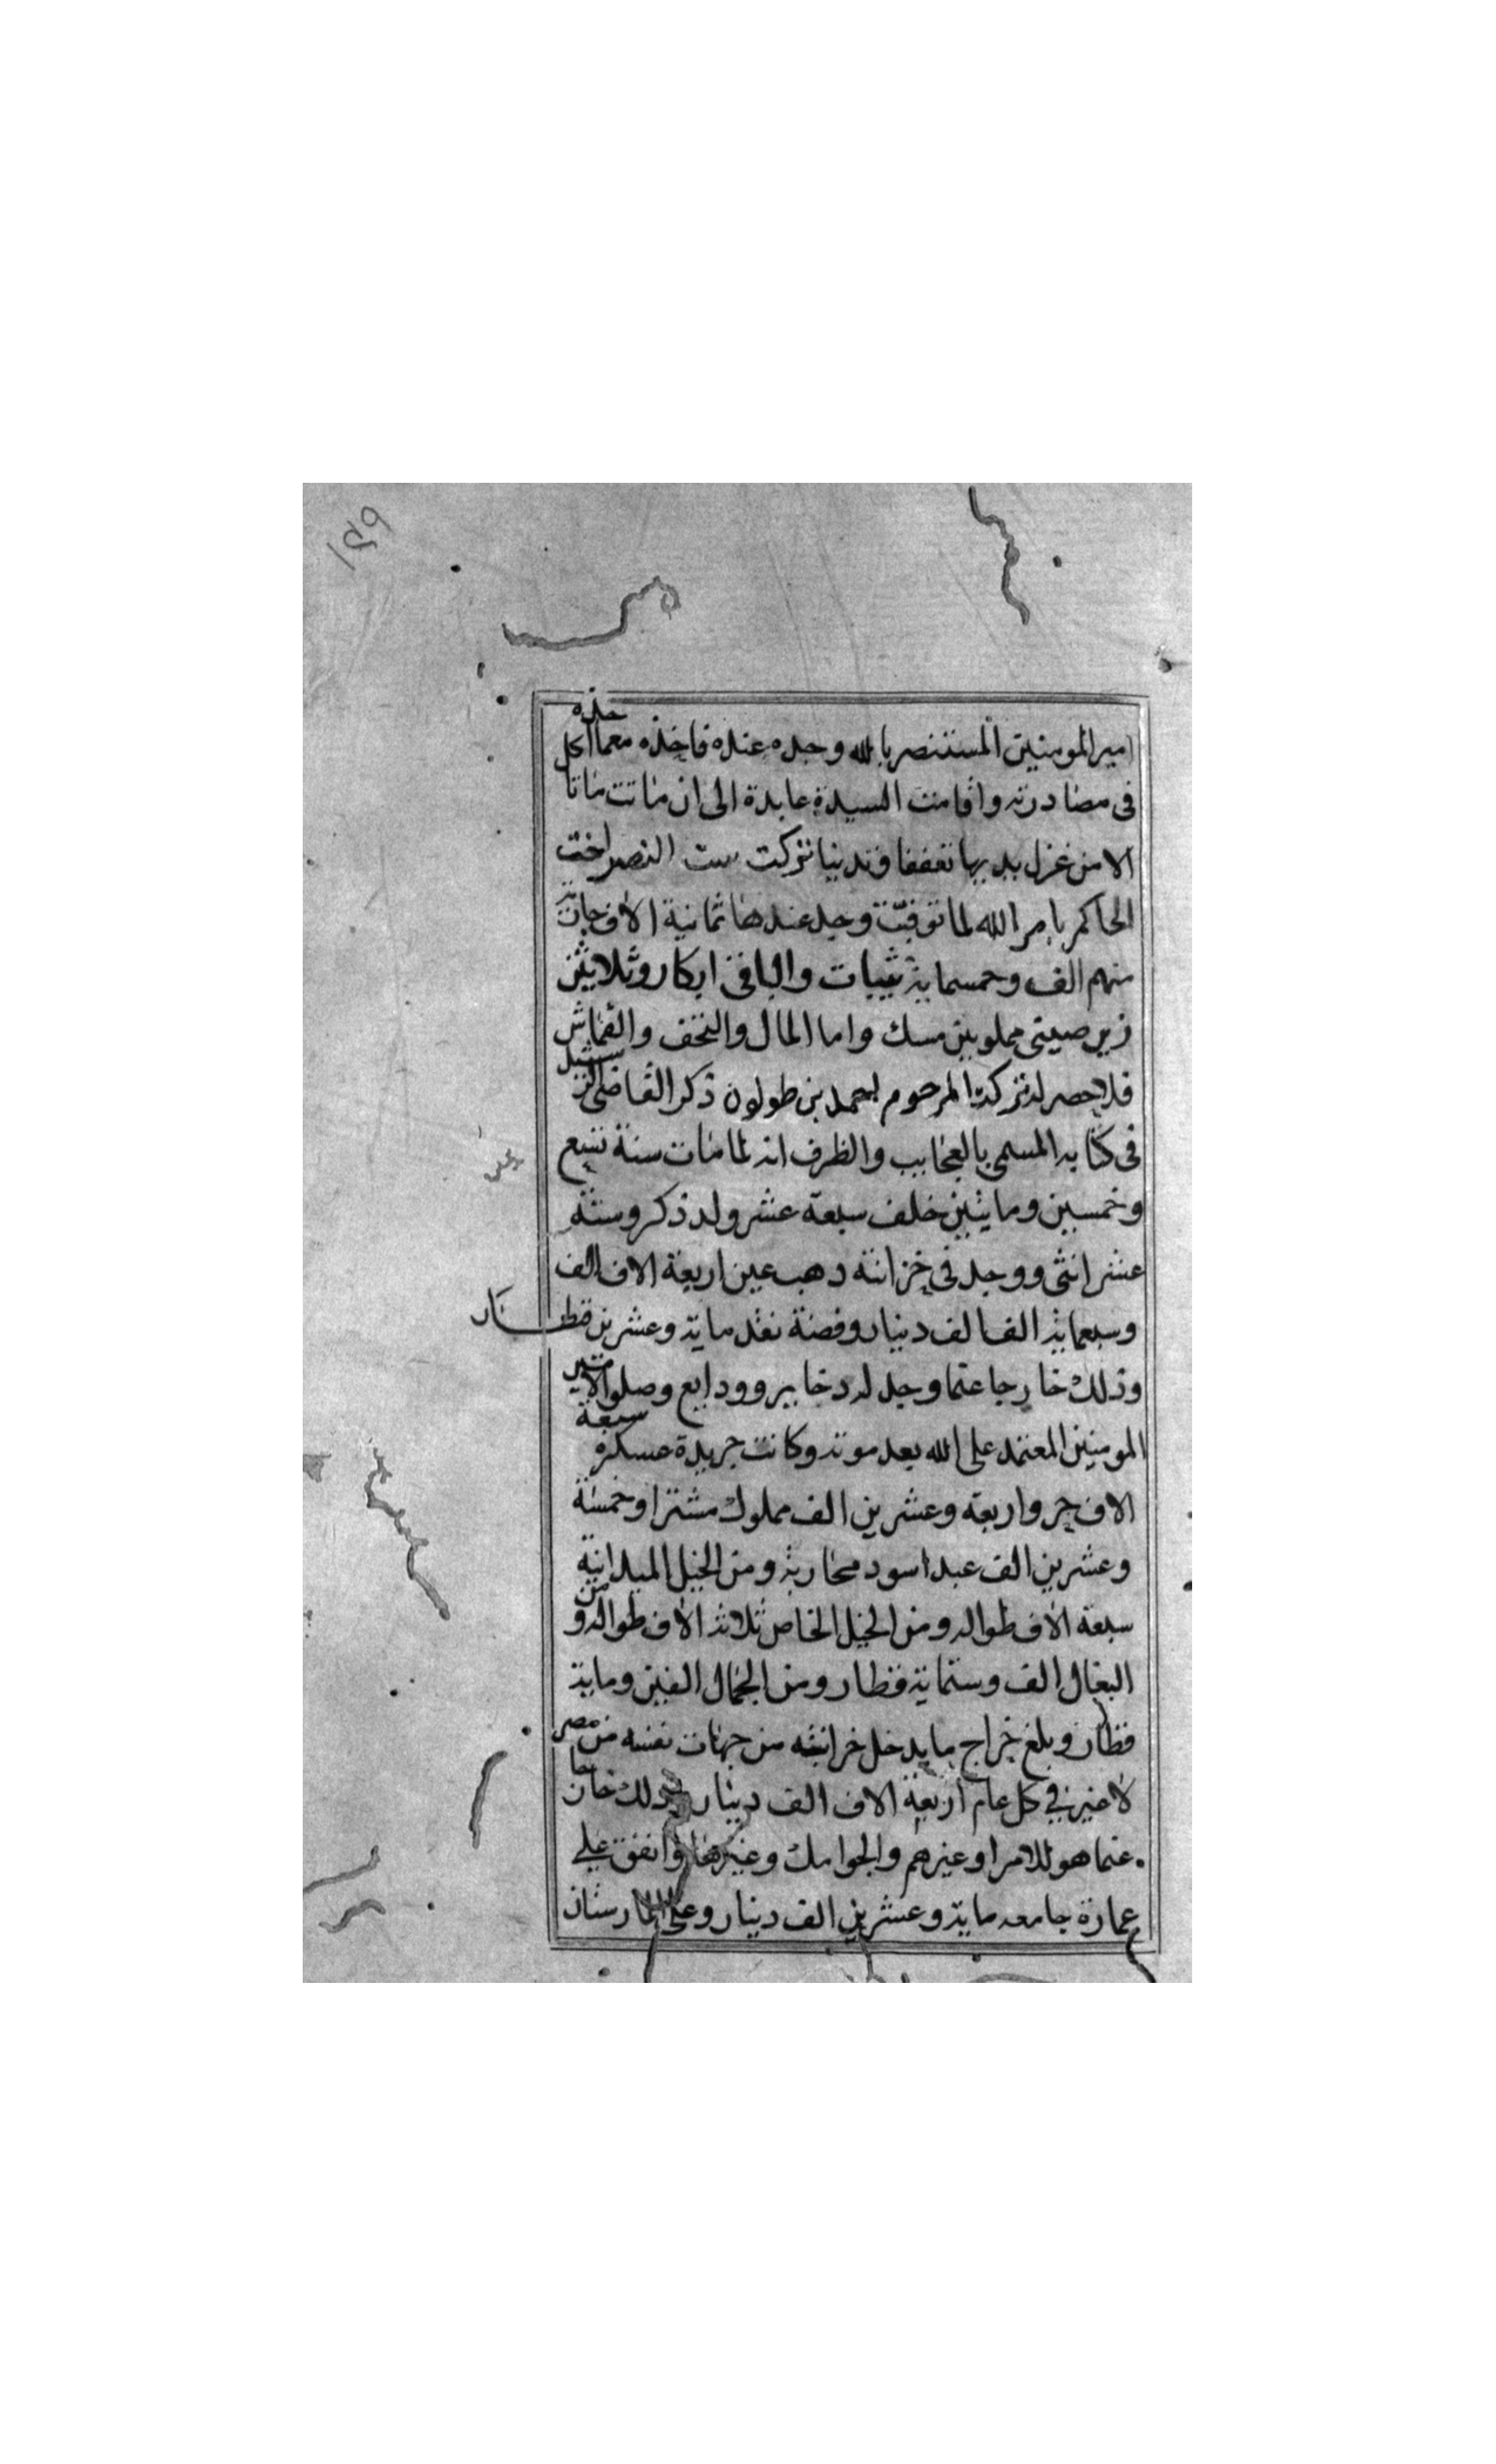 ١٤٩
امير المومنين المستنصر بالله وجده عنده فاخذه معما اخذه كل
فى مصادرته واقامت السيدة عابدة الى ان ماتت ماتا
الا من غزل يديها تعففا وتدينا تركت ست النصر اخت
الحاكم بامر الله لما توفيّت وجد عندها ثمانية الاف جارية
منهم الف وخمسماية ثيبات والباقى ابكار وثلاثين
زير صينى مملويين مسك واما المال والتحف والقماش
فلا حصر له تركة المرحوم احمد بن طولون ذكر القاضى الز
فى كتابه المسمى بالعجايب والظرف انه لما مات سنة تسع
وخمسين ومايتين خلف سبعة عشر ولد ذكر وستة
عشر انثى ووجد فى خزانته دهب عين اربعة الاف الف
وسبعماية الف الف دينار وفضة نقد ماية وعشرين قنطار
وذلك خارجا عنما وجد له دخاير وودايع وصلوا لامير
المومنين المعتمد على الله بعد موته وكانت جريدة عسكره سبعة
الاف حر واربعة وعشرين الف مملوك مشترا وخمسة
وعشرين الف عبد اسود محاربة ومن الخيل الميدانية
سبعة الاف طواله ومن الخيل الخاص ثلاثة الاف طواله ومن
البغال الف وستماية قطار ومن الجمال الفين وماية
قطار وبلغ خراج ما يدخل خزانته من جهات نفسه من مصر
لا غير فى كل عام اربعة الاف الف دينار وذلك خارجا
عنما هو للامرا وغيرهم والجوامك وغيرها وانفق على
عمارة جامعه ماية وعشرين الف دينار وعلى المارستان